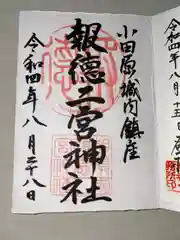 小田原城内鎮座
報徳二宮神社
令和四年八月二十八日
令和四年八月十五日